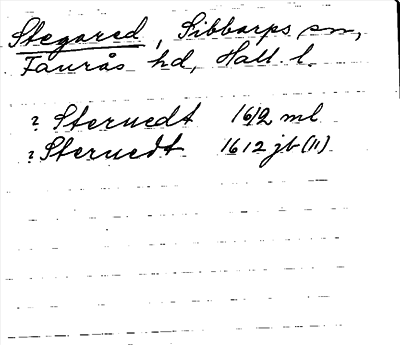 Stegared, Sibbarps sn,
Faurås hd, Hall. l.
? Steruedt 1612 ml
? Steruedt 1612 jb (11)